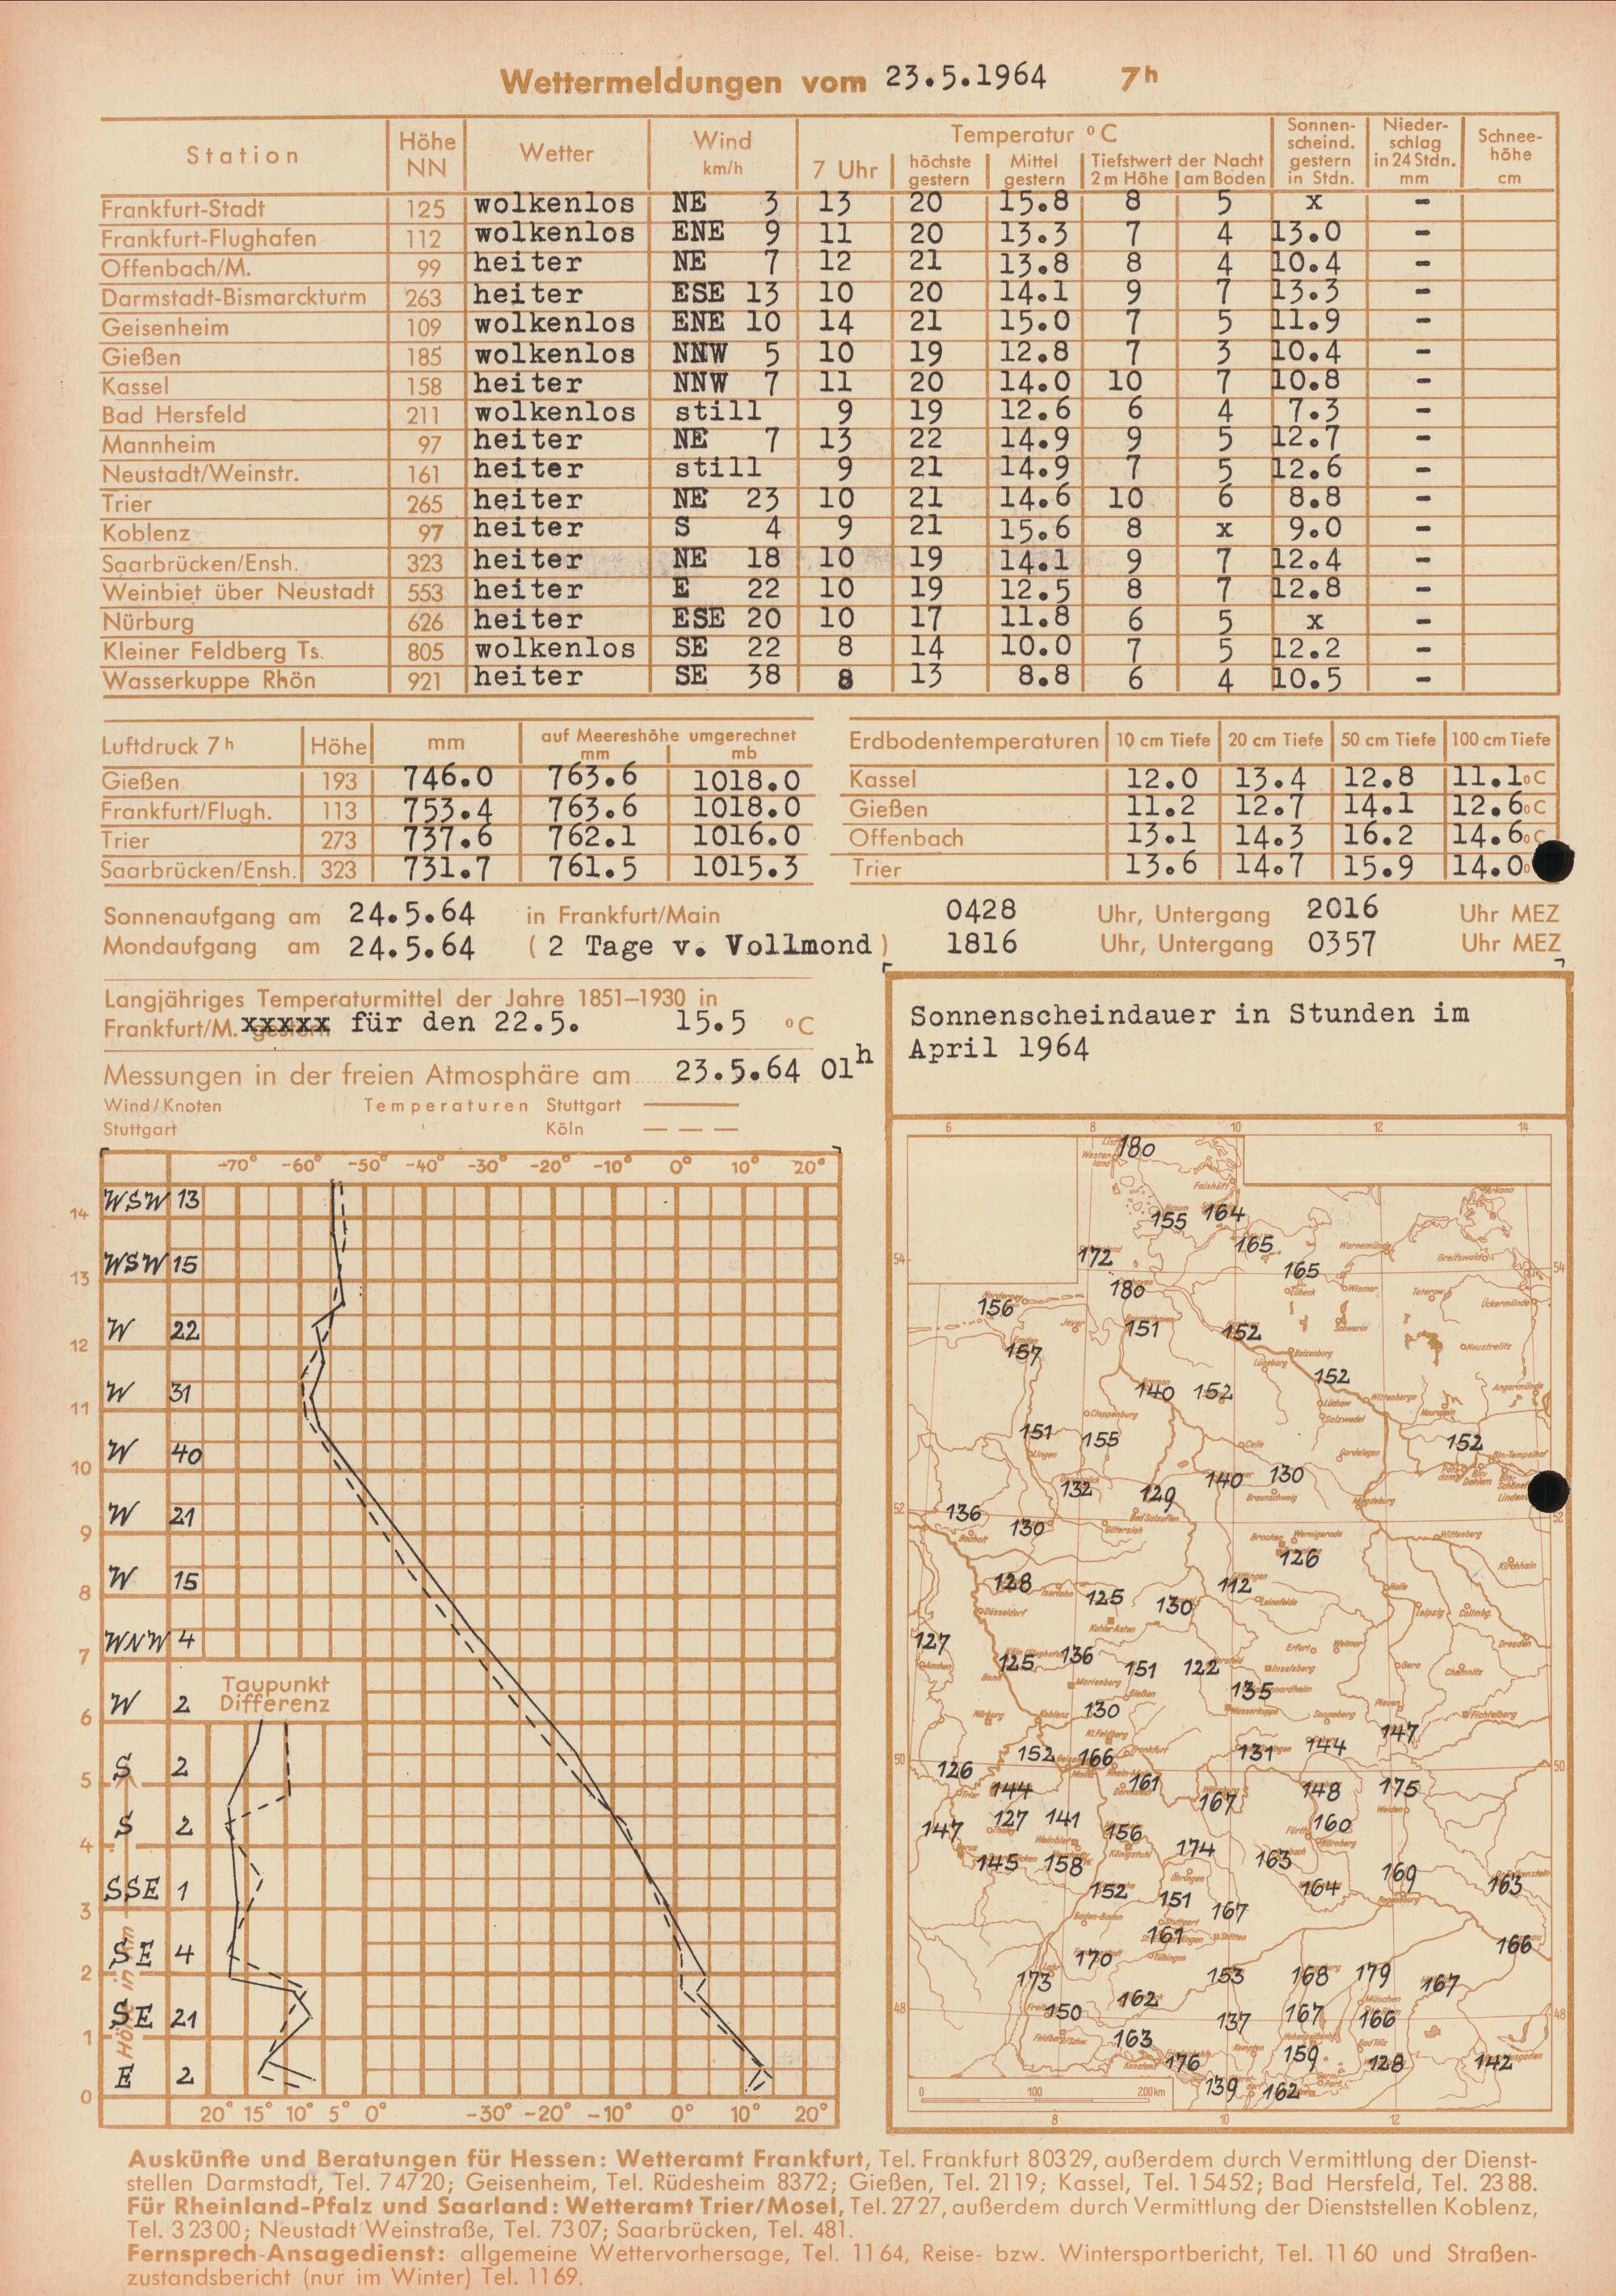 Wettermeldungen vom 23.5.1964 7h
Station Höhe NN Wetter Wind km/h Temperatur °C Sonnen-scheind. gestern in Stdn. Nieder-schlag in 24 Stdn. mm Schnee-höhe cm
7 Uhr höchste gestern Mittel gestern Tiefstwert der Nacht 2 m Höhe am Boden
Frankfurt-Stadt 125 wolkenlos NE 3 13 20 15.8 8 5 x -
Frankfurt-Flughafen 112 wolkenlos ENE 9 11 20 13.3 7 4 13.0 -
Offenbach/M. 99 heiter NE 7 12 21 13.8 8 4 10.4 -
Darmstadt-Bismarckturm 263 heiter ESE 13 10 20 14.1 9 7 13.3 -
Geisenheim 109 wolkenlos ENE 10 14 21 15.0 7 5 11.9 -
Gießen 185 wolkenlos NNW 5 10 19 12.8 7 3 10.4 -
Kassel 158 heiter NNW 7 11 20 14.0 10 7 10.8 -
Bad Hersfeld 211 wolkenlos still 9 19 12.6 6 4 7.3 -
Mannheim 97 heiter NE 7 13 22 14.9 9 5 12.7 -
Neustadt/Weinstr. 161 heiter still 9 21 14.9 7 5 12.6 -
Trier 265 heiter NE 23 10 21 14.6 10 6 8.8 -
Koblenz 97 heiter S 4 9 21 15.6 8 x 9.0 -
Saarbrücken/Ensh. 323 heiter NE 18 10 19 14.1 9 7 12.4 -
Weinbiet über Neustadt 553 heiter E 22 10 19 12.5 8 7 12.8 -
Nürburg 626 heiter ESE 20 10 17 11.8 6 5 x -
Kleiner Feldberg Ts. 805 wolkenlos SE 22 8 14 10.0 7 5 12.2 -
Wasserkuppe Rhön 921 heiter SE 38 8 13 8.8 6 4 10.5 -
Luftdruck 7h Höhe mm auf Meereshöhe umgerechnet mm mb
Gießen 193 746.0 763.6 1018.0
Frankfurt/Flugh. 113 753.4 763.6 1018.0
Trier 273 737.6 762.1 1016.0
Saarbrücken/Ensh. 323 731.7 761.5 1015.3
Erdbodentemperaturen 10 cm Tiefe 20 cm Tiefe 50 cm Tiefe 100 cm Tiefe
Kassel 12.0 13.4 12.8 11.1 °C
Gießen 11.2 12.7 14.1 12.6 °C
Offenbach 13.1 14.3 16.2 14.6 °C
Trier 13.6 14.7 15.9 14.0 °
Sonnenaufgang am 24.5.64 in Frankfurt/Main 0428 Uhr, Untergang 2016 Uhr MEZ
Mondaufgang am 24.5.64 ( 2 Tage v. Vollmond ) 1816 Uhr, Untergang 0357 Uhr MEZ
Langjähriges Temperaturmittel der Jahre 1851–1930 in
Frankfurt/M. xxxxx für den 22.5. 15.5 °C
Messungen in der freien Atmosphäre am 23.5.64 01h
Wind/Knoten Temperaturen Stuttgart
Stuttgart Köln
-70° -60° -50° -40° -30° -20° -10° 0° 10° 20°
WSW 13
14
WSW 15
13
W 22
12
W 31
11
W 40
10
W 21
9
W 15
8
WNW 4
7
Taupunkt
Differenz
W 2
6
S 2
5
S 2
4
SSE 1
3
SE 4
2
SE 21
1
E 2
0
Höhe in km
20° 15° 10° 5° 0° -30° -20° -10° 0° 10° 20°
Sonnenscheindauer in Stunden im
April 1964
6 8 10 12 14
180
155 164
172 165
54 165 54
180
156 151 152
157
152
140 152
151 155 152
132 140 130
129
136 130
52 52
126
128 125 130 112
127
125 136 151 122
135
130
147
152 166 131 144
50 126 50
144 161 167 148 175
147 127 141 156 160
145 158 174 163 169 163
152 151 167 164
161 166
173 170 153 168 179 167
48 150 162 137 167 166 48
163 159
176 128 142
139 162
0 100 200 km
8 10 12
Auskünfte und Beratungen für Hessen: Wetteramt Frankfurt, Tel. Frankfurt 80329, außerdem durch Vermittlung der Dienst-
stellen Darmstadt, Tel. 74720; Geisenheim, Tel. Rüdesheim 8372; Gießen, Tel. 2119; Kassel, Tel. 15452; Bad Hersfeld, Tel. 2388.
Für Rheinland-Pfalz und Saarland: Wetteramt Trier/Mosel, Tel. 2727, außerdem durch Vermittlung der Dienststellen Koblenz,
Tel. 32300; Neustadt Weinstraße, Tel. 7307; Saarbrücken, Tel. 481.
Fernsprech-Ansagedienst: allgemeine Wettervorhersage, Tel. 1164, Reise- bzw. Wintersportbericht, Tel. 1160 und Straßen-
zustandsbericht (nur im Winter) Tel. 1169.